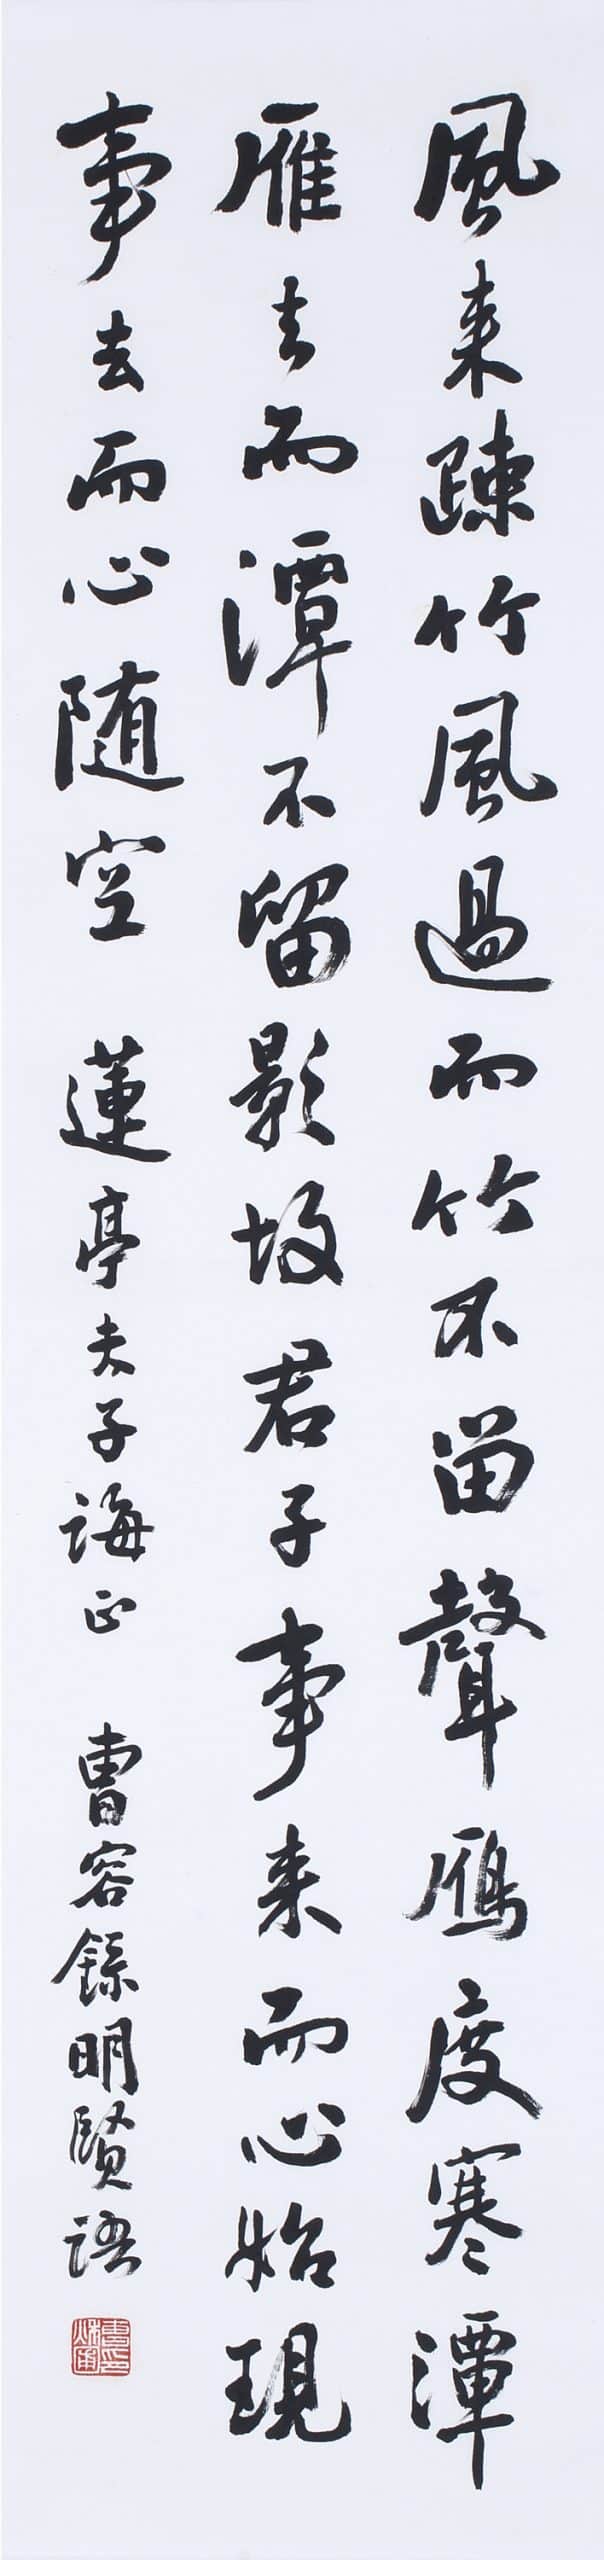 風来踈竹風過而竹不留聲鴈度寒潭
雁去而潭不留影故君子事来而心始現
事去而心随空 蓮亭夫子誨正 曹容錄明賢語